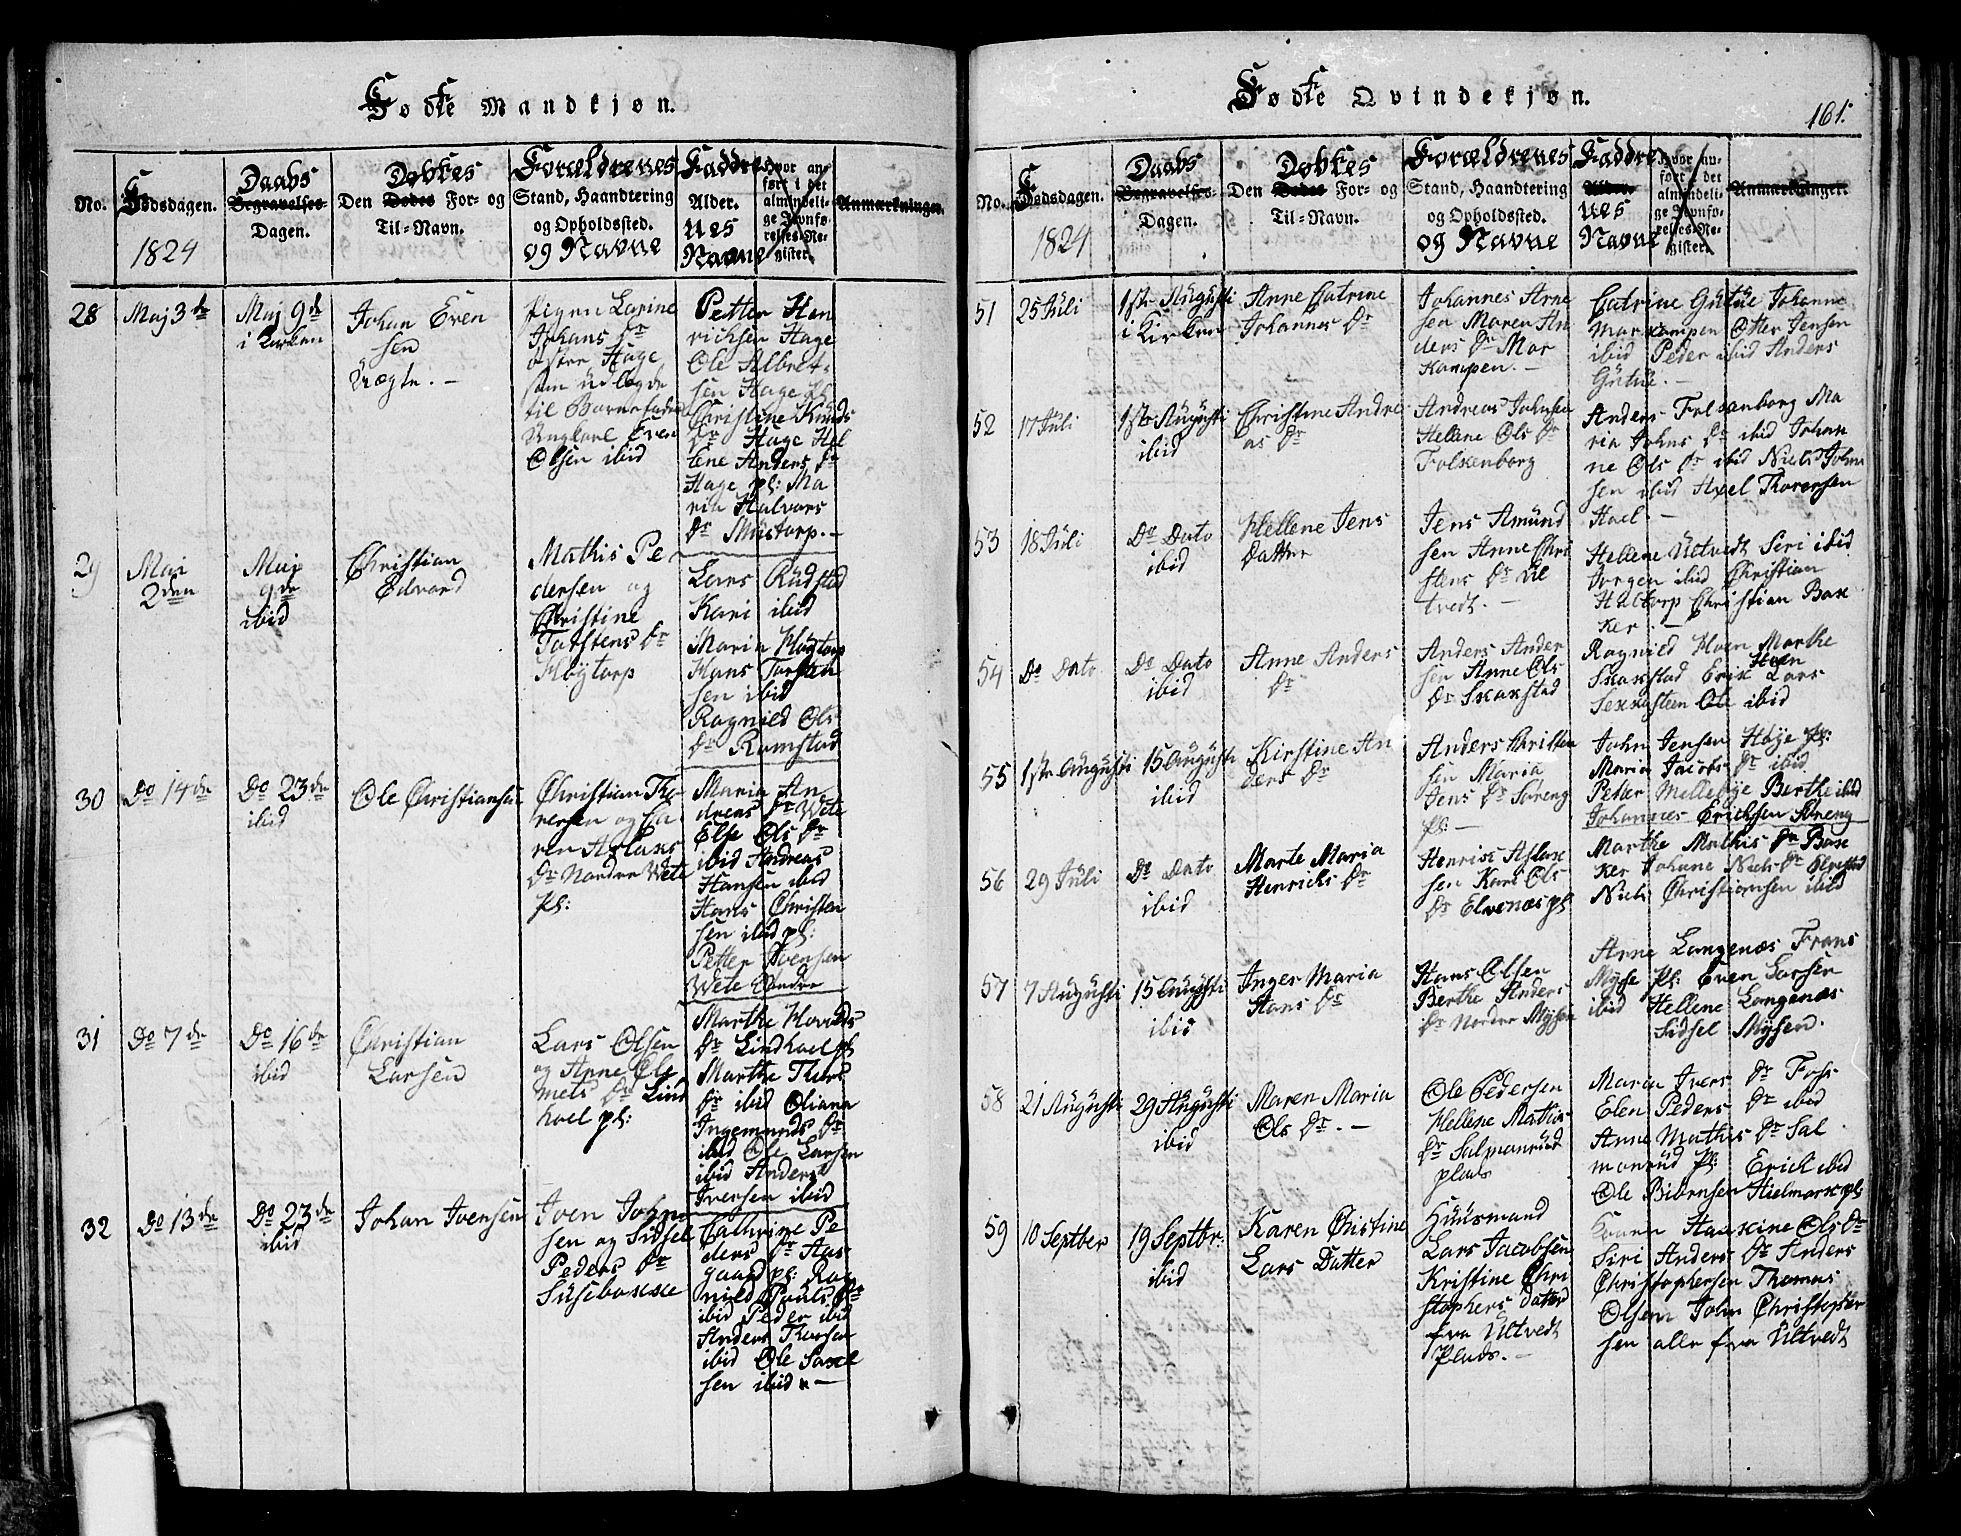 Fødte Mandkjøn.
No.
Fødsdagen.
1824
Daabs
Begravelses-
Dagen.
Døbtes
Den Dødes For- og
Til-Navn.
Forældrenes
Stand, Haandtering
og Opholdssted.
og Navne
Faddre
Alder.
nes
Navne
Hvor an-
ført i det
almindeli-
ge Jevnfø-
relses-Re-
gister.
Anmærkninger.
28
Maj 3de
Maj 9de
i Kirken
Johan Even
sen
Uægte. -
Pigen Karine
Johans Dr
østre Hage
som udlagde
til Barnefader
Ungkarl Even
Olsen ibid
Petter Hen
richsen Hage
Ole Albret-
sen Hage pl:
Christine Knuds
Dr Hage Hel
lene Anders Dr
Hage pl: Ma
ria Halvors
Dr Mustorp. -
29
Mai
2den
Mai
9de
ibid
Christian
Edvard
Mathis Pe-
dersen og
Christine
Torstens Dr
Høytorp
Lars Rudstad
Kari ibid
Maria Høytorp
Hans Torsten
sen ibid
Ragnild Ols
Dr Ramstad
30
Do 14de
Do 23de
ibid
Ole Christiansen
Christian Tho-
resen og Ka-
ren Aslaks
Dr Nordre Wete
pl:
Maria An-
drens Dr Wete
Else Ols Dr
ibid Andreas
Hansen ibid
Hans Christen
sen ibid pl:
Petter Ivensen
Wete Søndre
31
Do 7de
Do 16de
ibid
Christian
Larsen
Lars Olsen
og Anne Cle
mets Dr Lind
hoel pl:
Marthe Hovalds
Dr Lindhoel pl
Marthe Thers
Dr ibid Oliana
Ingemunds Dr
ibid Ole Larsen
ibid Anders
Iversen ibid
32
Do 13de
Do 23de
ibid
Johan Ivensen
Iven John-
sen og Sidsel
Peders Dr
Susebakke
Cathrine Pe-
ders Dr Aas-
gaard pl: Rag
nild Pouls Dr
ibid Peder ibid
Anders Thorsen
ibid Ole Saxel
sen ibid -
Fødte Qvindekjøn.
161.
No.
Fødsdagen.
1824
Daabs
Begravelses-
Dagen.
Døbtes
Den Dødes For- og
Til-Navn.
Forældrenes
Stand, Haandtering
og Opholdssted.
og Navne
Faddre
Alder.
nes
Navne
Hvor an-
ført i det
almindeli-
ge Jevnfø-
relses-Re-
gister.
Anmærkninger.
51
25 Juli
1ste Augusti
i Kirken
Anne Catrine
Johannes Dr
Johannes Arne
sen Maren An
ders Dr Mor
kampen. -
Catrine Gutue Johanne
Morkampen Otter Jensen
ibid Peder ibid Anders
Gutue. -
52
17 Juli
1ste Augusti
ibid
Christine Andre
as Dr
Andreas Johnsen
Hellene Ols Dr
Folkenborg
Anders Folkenborg Ma
ria Johns Dr ibid Johan
ne Ols Dr ibid Niels John
sen ibid Axel Thoresen
Hoel. -
53
18 Juli
Do Dato
ibid
Hellene Jens
Datter
Jens Amund
sen Anne Chri
stens Dr Ul
tvedt. -
Hellene Ultvedt Siri ibid
Jørgen ibid Christian
Haltorp Christian Bak
ker. -
54
Do Dato
Do Dato
ibid
Anne Anders
Dr
Anders Ander
sen Anne Ols
Dr Skakstad
Ragnild Hoen Marthe
Skakstad Erik Hoen Lars
Sekkesteen Ole ibid
55
1ste Augusti
15 Augusti
ibid
Kirstine An
ders Dr
Anders Christen
sen Maria
Jens Dr Søreng
pl: -
John Jensen Høje pl:
Maria Jacobs Dr ibid
Peter Mellebye Berthe ibid
Johannes Erichsen Søreng
56
29 Juli
Do Dato
ibid
Marte Maria
Henrichs Dr
Henrik Aslak
sen Kari Ols
Dr Elvenæs pl
Marthe Mathis Dr Bak
ker Johane Niels Dr
Niels Christiansen ibid
57
7 Augusti
15 Augusti
ibid
Inger Maria
Hans Dr
Hans Olsen
Berthe Anders
Dr Nordre Mysen
Anne Langenæs Frans
Mysse pl: Even Larsen
ibid Hellene Langenæs
Sidsel Mysen.
58
21 Augusti
29 Augusti
ibid
Maren Maria
Ols Dr. -
Ole Pedersen
Hellene Mathis
Dr Salmonrud
plads
Maria Ivers Dr Foss
Elen Peders Dr ibid
Anne Mathis Dr Sal
monrud pl: Erick ibid
Ole Biørnsen Hielmark pl:
59
10 Septber
19 Septbr:
ibid
Karen Christine
Lars Datter
Huusmand
Lars Jacobsen
Kristine Chri
stophers Datter
fra Ultvedt
Plads. -
Karen Haakine Ols Dr
Siri Anders Dr Anders
Christophersen Thomas
Olsen John Christopher
sen alle fra Ultvedt